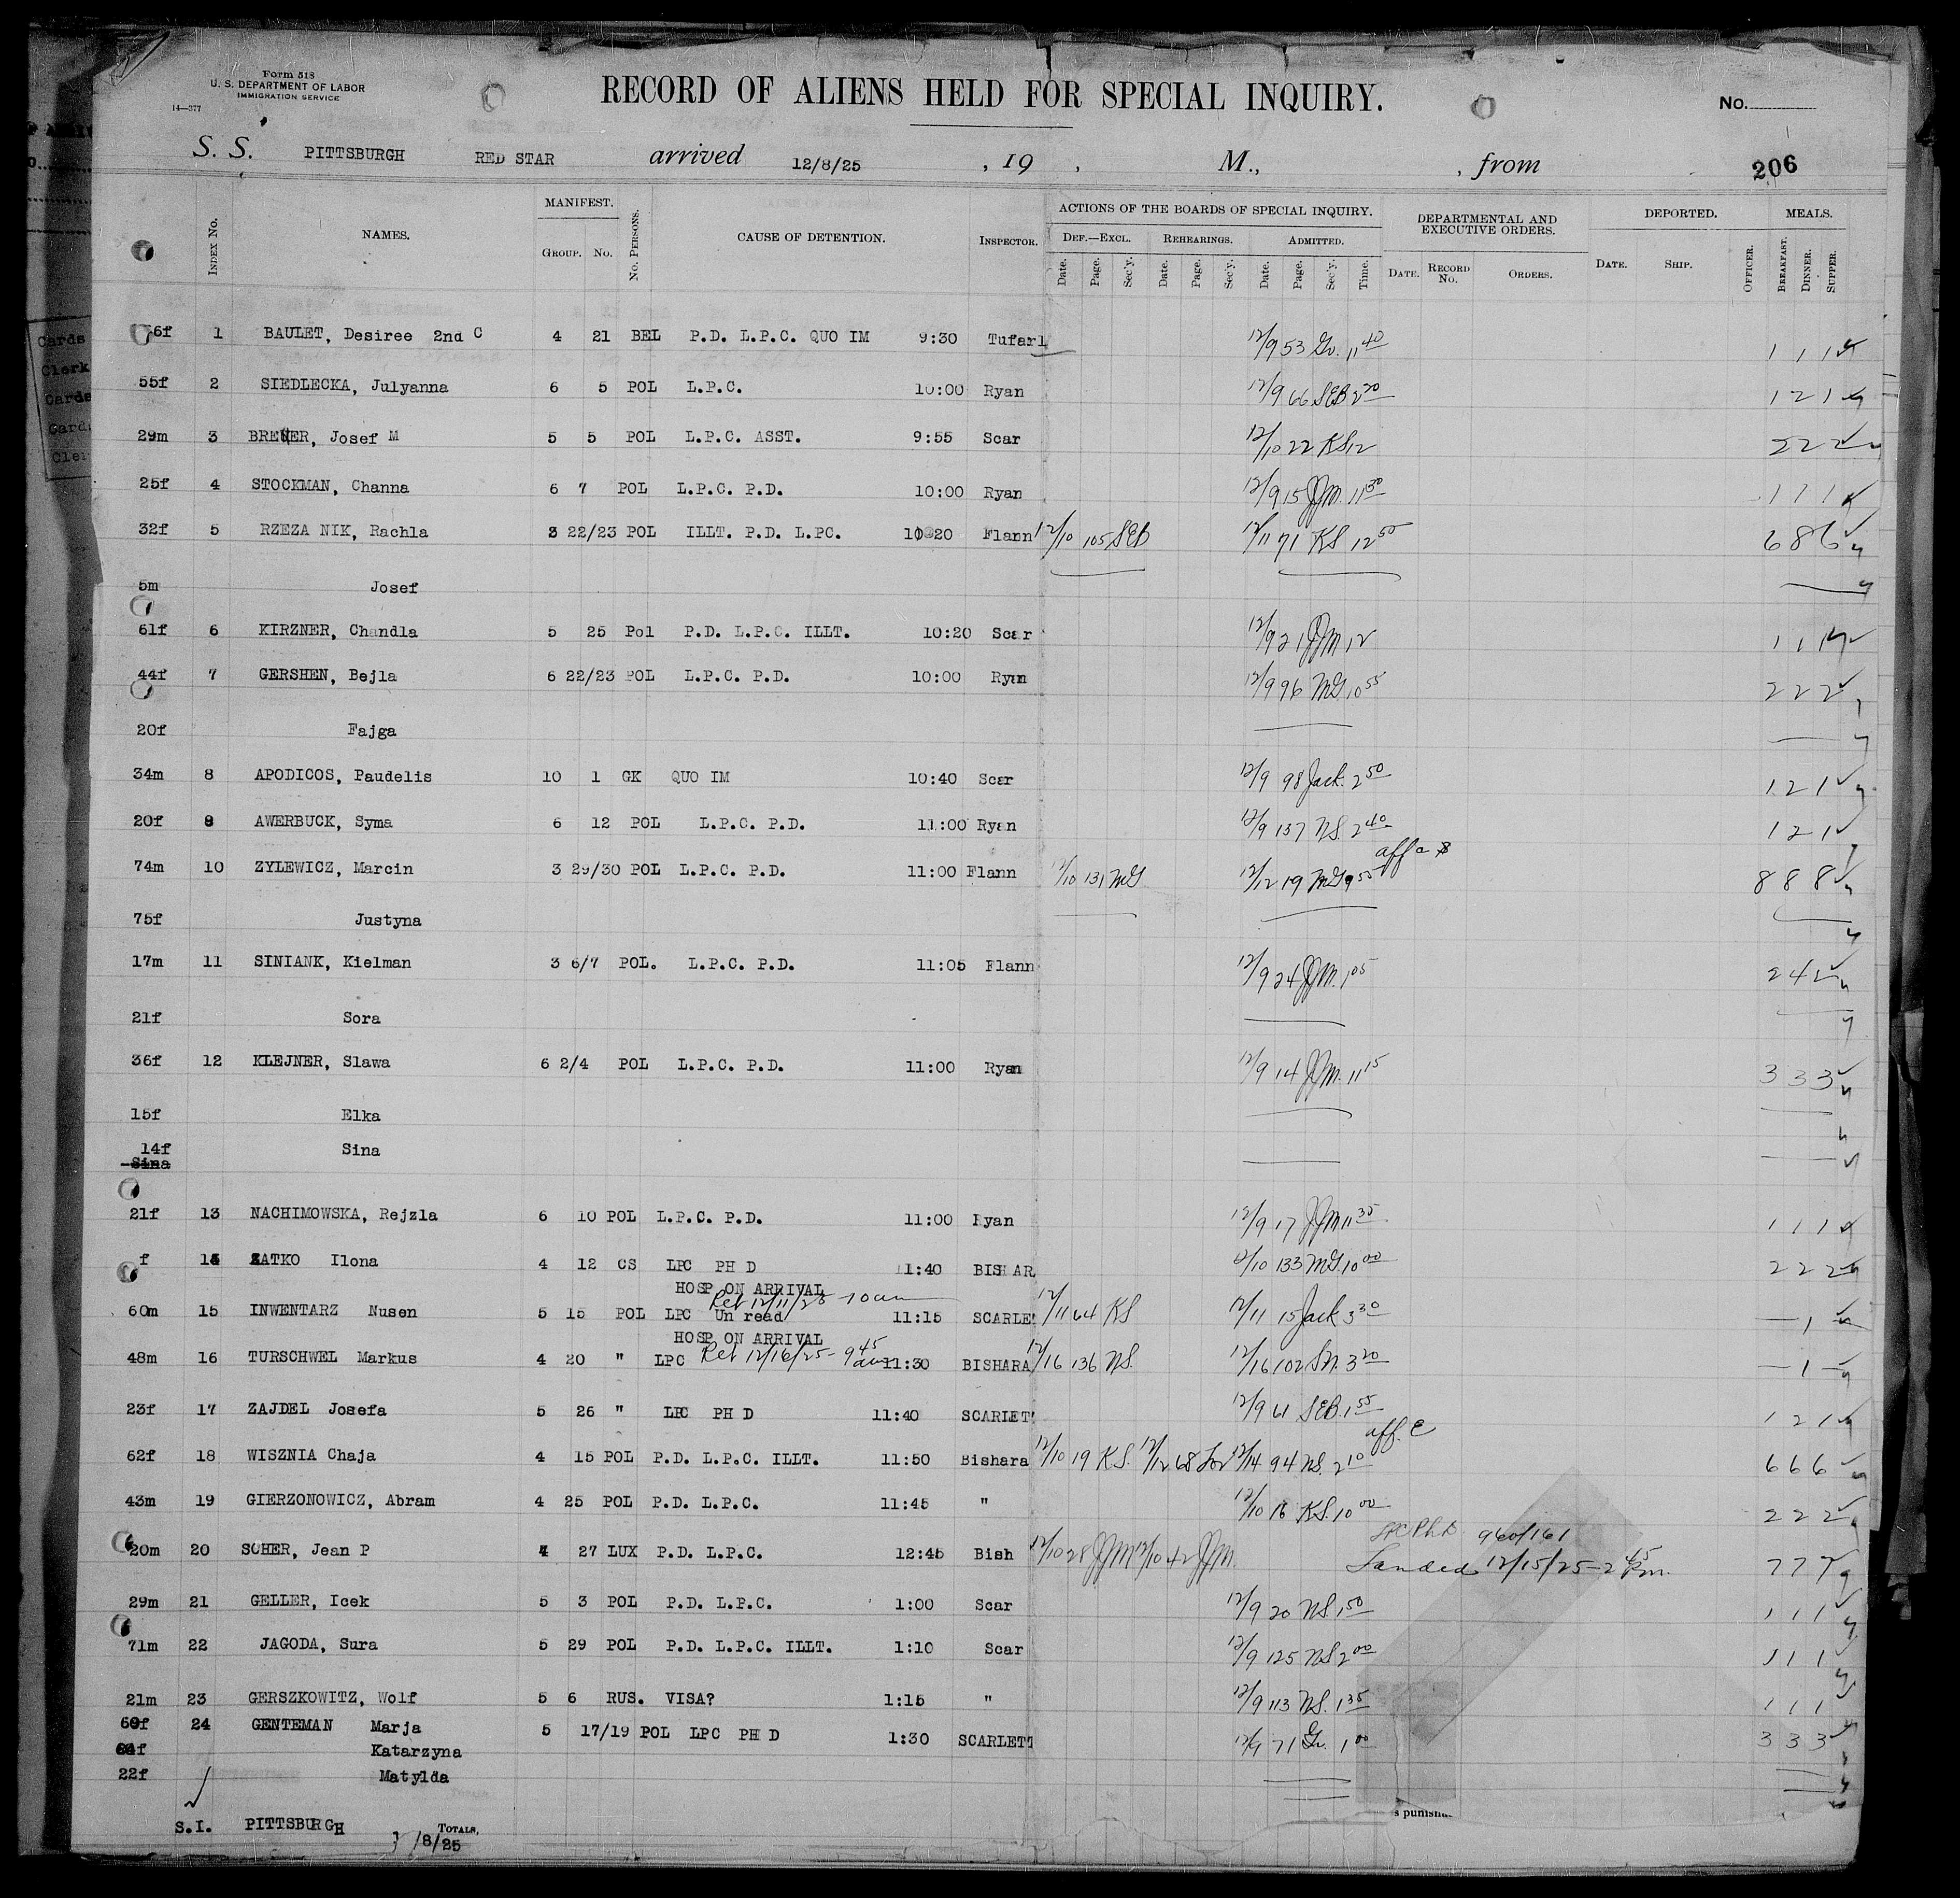 Form 518
U. S. DEPARTMENT OF LABOR
IMMIGRATION SERVICE
14—377
RECORD OF ALIENS HELD FOR SPECIAL INQUIRY.
No.
S. S. PITTSBURGH RED STAR arrived 12/8/25 , 19 , M., , from 206
Index No. NAMES. MANIFEST. Group. No. No. Persons. CAUSE OF DETENTION. Inspector. ACTIONS OF THE BOARDS OF SPECIAL INQUIRY. DEPARTMENTAL AND EXECUTIVE ORDERS. DEPORTED. MEALS.
Def.—Excl. Rehearings. Admitted.
Date. Page. Sec'y. Date. Page. Sec'y. Date. Page. Sec'y. Time. Date. Record No. Orders. Date. Ship. Officer. Breakfast. Dinner. Supper.
6f 1 BAULET, Desiree 2nd C 4 21 BEL P.D. L.P.C. QUO IM 9:30 Tufarl 12/9 53 Gv. 11 40 1 1 1
55f 2 SIEDLECKA, Julyanna 6 5 POL L.P.C. 10:00 Ryan 12/9 66 SEB 2 20 1 2 1
29m 3 BREUER, Josef M 5 5 POL L.P.C. ASST. 9:55 Scar 12/10 22 KS 12 2 2 2
25f 4 STOCKMAN, Channa 6 7 POL L.P.C. P.D. 10:00 Ryan 12/9 15 JJM. 11 30 1 1 1
32f 5 RZEZA NIK, Rachla 3 22/23 POL ILLT. P.D. L.PC. 10:20 Flann 12/10 105 SEB 12/11 71 KS 12 50 6 8 6
5m Josef
61f 6 KIRZNER, Chandla 5 25 Pol P.D. L.P.C. ILLT. 10:20 Scar 12/9 21 JJM 12 1 1 1
44f 7 GERSHEN, Bejla 6 22/23 POL L.P.C. P.D. 10:00 Ryan 12/9 96 MG 10 55 2 2 2
20f Fajga
34m 8 APODICOS, Paudelis 10 1 GK QUO IM 10:40 Scar 12/9 98 Jack. 2 50 1 2 1
20f 9 AWERBUCK, Syma 6 12 POL L.P.C. P.D. 11:00 Ryan 12/9 137 NS. 2 40 1 2 1
74m 10 ZYLEWICZ, Marcin 3 29/30 POL L.P.C. P.D. 11:00 Flann 12/10 131 MG 12/12 19 MG 9 55 8 8 8
75f Justyna
17m 11 SINIANK, Kielman 3 6/7 POL. L.P.C. P.D. 11:05 Flann 12/9 24 JJM. 1 05 2 4 2
21f Sora
36f 12 KLEJNER, Slawa 6 2/4 POL L.P.C. P.D. 11:00 Ryan 12/9 14 JJM. 11 15 3 3 3
15f Elka
14f Sina
Sina
21f 13 NACHIMOWSKA, Rejzla 6 10 POL L.P.C. P.D. 11:00 Ryan 12/9 17 JJM 11 35 1 1 1
f 14 ZATKO Ilona 4 12 CS LPC PH D 11:40 BISHAR 12/10 133 MG. 10 00 2 2 2
HOSP ON ARRIVAL
Ret 12/11/25 10 am
60m 15 INWENTARZ Nusen 5 15 POL LPC Un read 11:15 SCARLE 12/11 64 KS 12/11 15 Jack 3 30 — 1 —
HOSP ON ARRIVAL
48m 16 TURSCHWEL Markus 4 20 " LPC Ret 12/16/25 - 9 45 am 11:30 BISHARA 12/16 136 NS. 12/16 102 SN. 3 20 — 1 —
23f 17 ZAJDEL Josefa 5 26 " LPC PH D 11:40 SCARLETT 12/9 61 SEB. 1 55 1 2 1
62f 18 WISZNIA Chaja 4 15 POL P.D. L.P.C. ILLT. 11:50 Bishara 12/10 19 KS. 12/12 68 12/14 94 NS. 2 10 aff. C 6 6 6
43m 19 GIERZONOWICZ, Abram 4 25 POL P.D. L.P.C. 11:45 " 12/10 16 KS. 10 00 2 2 2
20m 20 SCHER, Jean P 4 27 LUX P.D. L.P.C. 12:45 Bish 12/10 28 JJM 12/10 42 JJM. LPC Ph.D. 960/161 Landed 12/15/25 - 2 45 P.m. 7 7 7
29m 21 GELLER, Icek 5 3 POL P.D. L.P.C. 1:00 Scar 12/9 20 NS 1 50 1 1 1
71m 22 JAGODA, Sura 5 29 POL P.D. L.P.C. ILLT. 1:10 Scar 12/9 125 NS 2 00 1 1 1
21m 23 GERSZKOWITZ, Wolf 5 6 RUS. VISA? 1:15 " 12/9 113 NS. 1 35 1 1 1
60f 24 GENTEMAN Marja 5 17/19 POL LPC PH D 1:30 SCARLETT 12/9 71 Gv. 1 00 3 3 3
Katarzyna
22f Matylda
s punish
S.I. PITTSBURGH Totals, /8/25